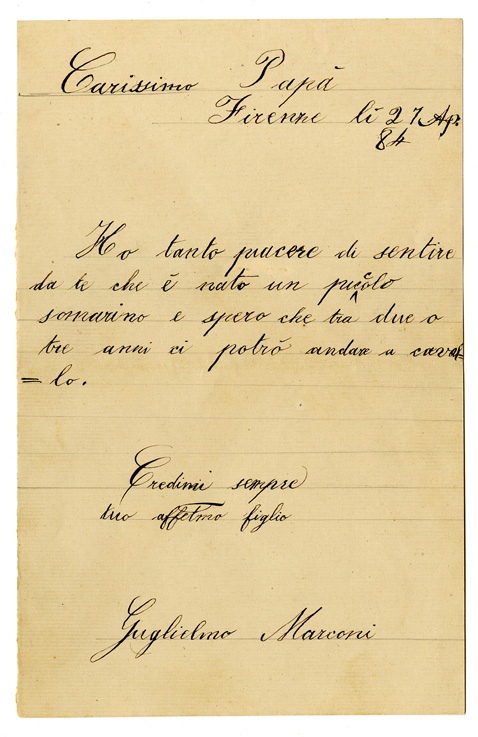 Carissimo Papà
Firenze lì 27 Apr.
84
Ho tanto piacere di sentire
da te che è nato un piccolo
somarino e spero che tra due o
tre anni ci potrò andare a caval
= lo.
Credimi sempre
tuo affetmo figlio
Guglielmo Marconi